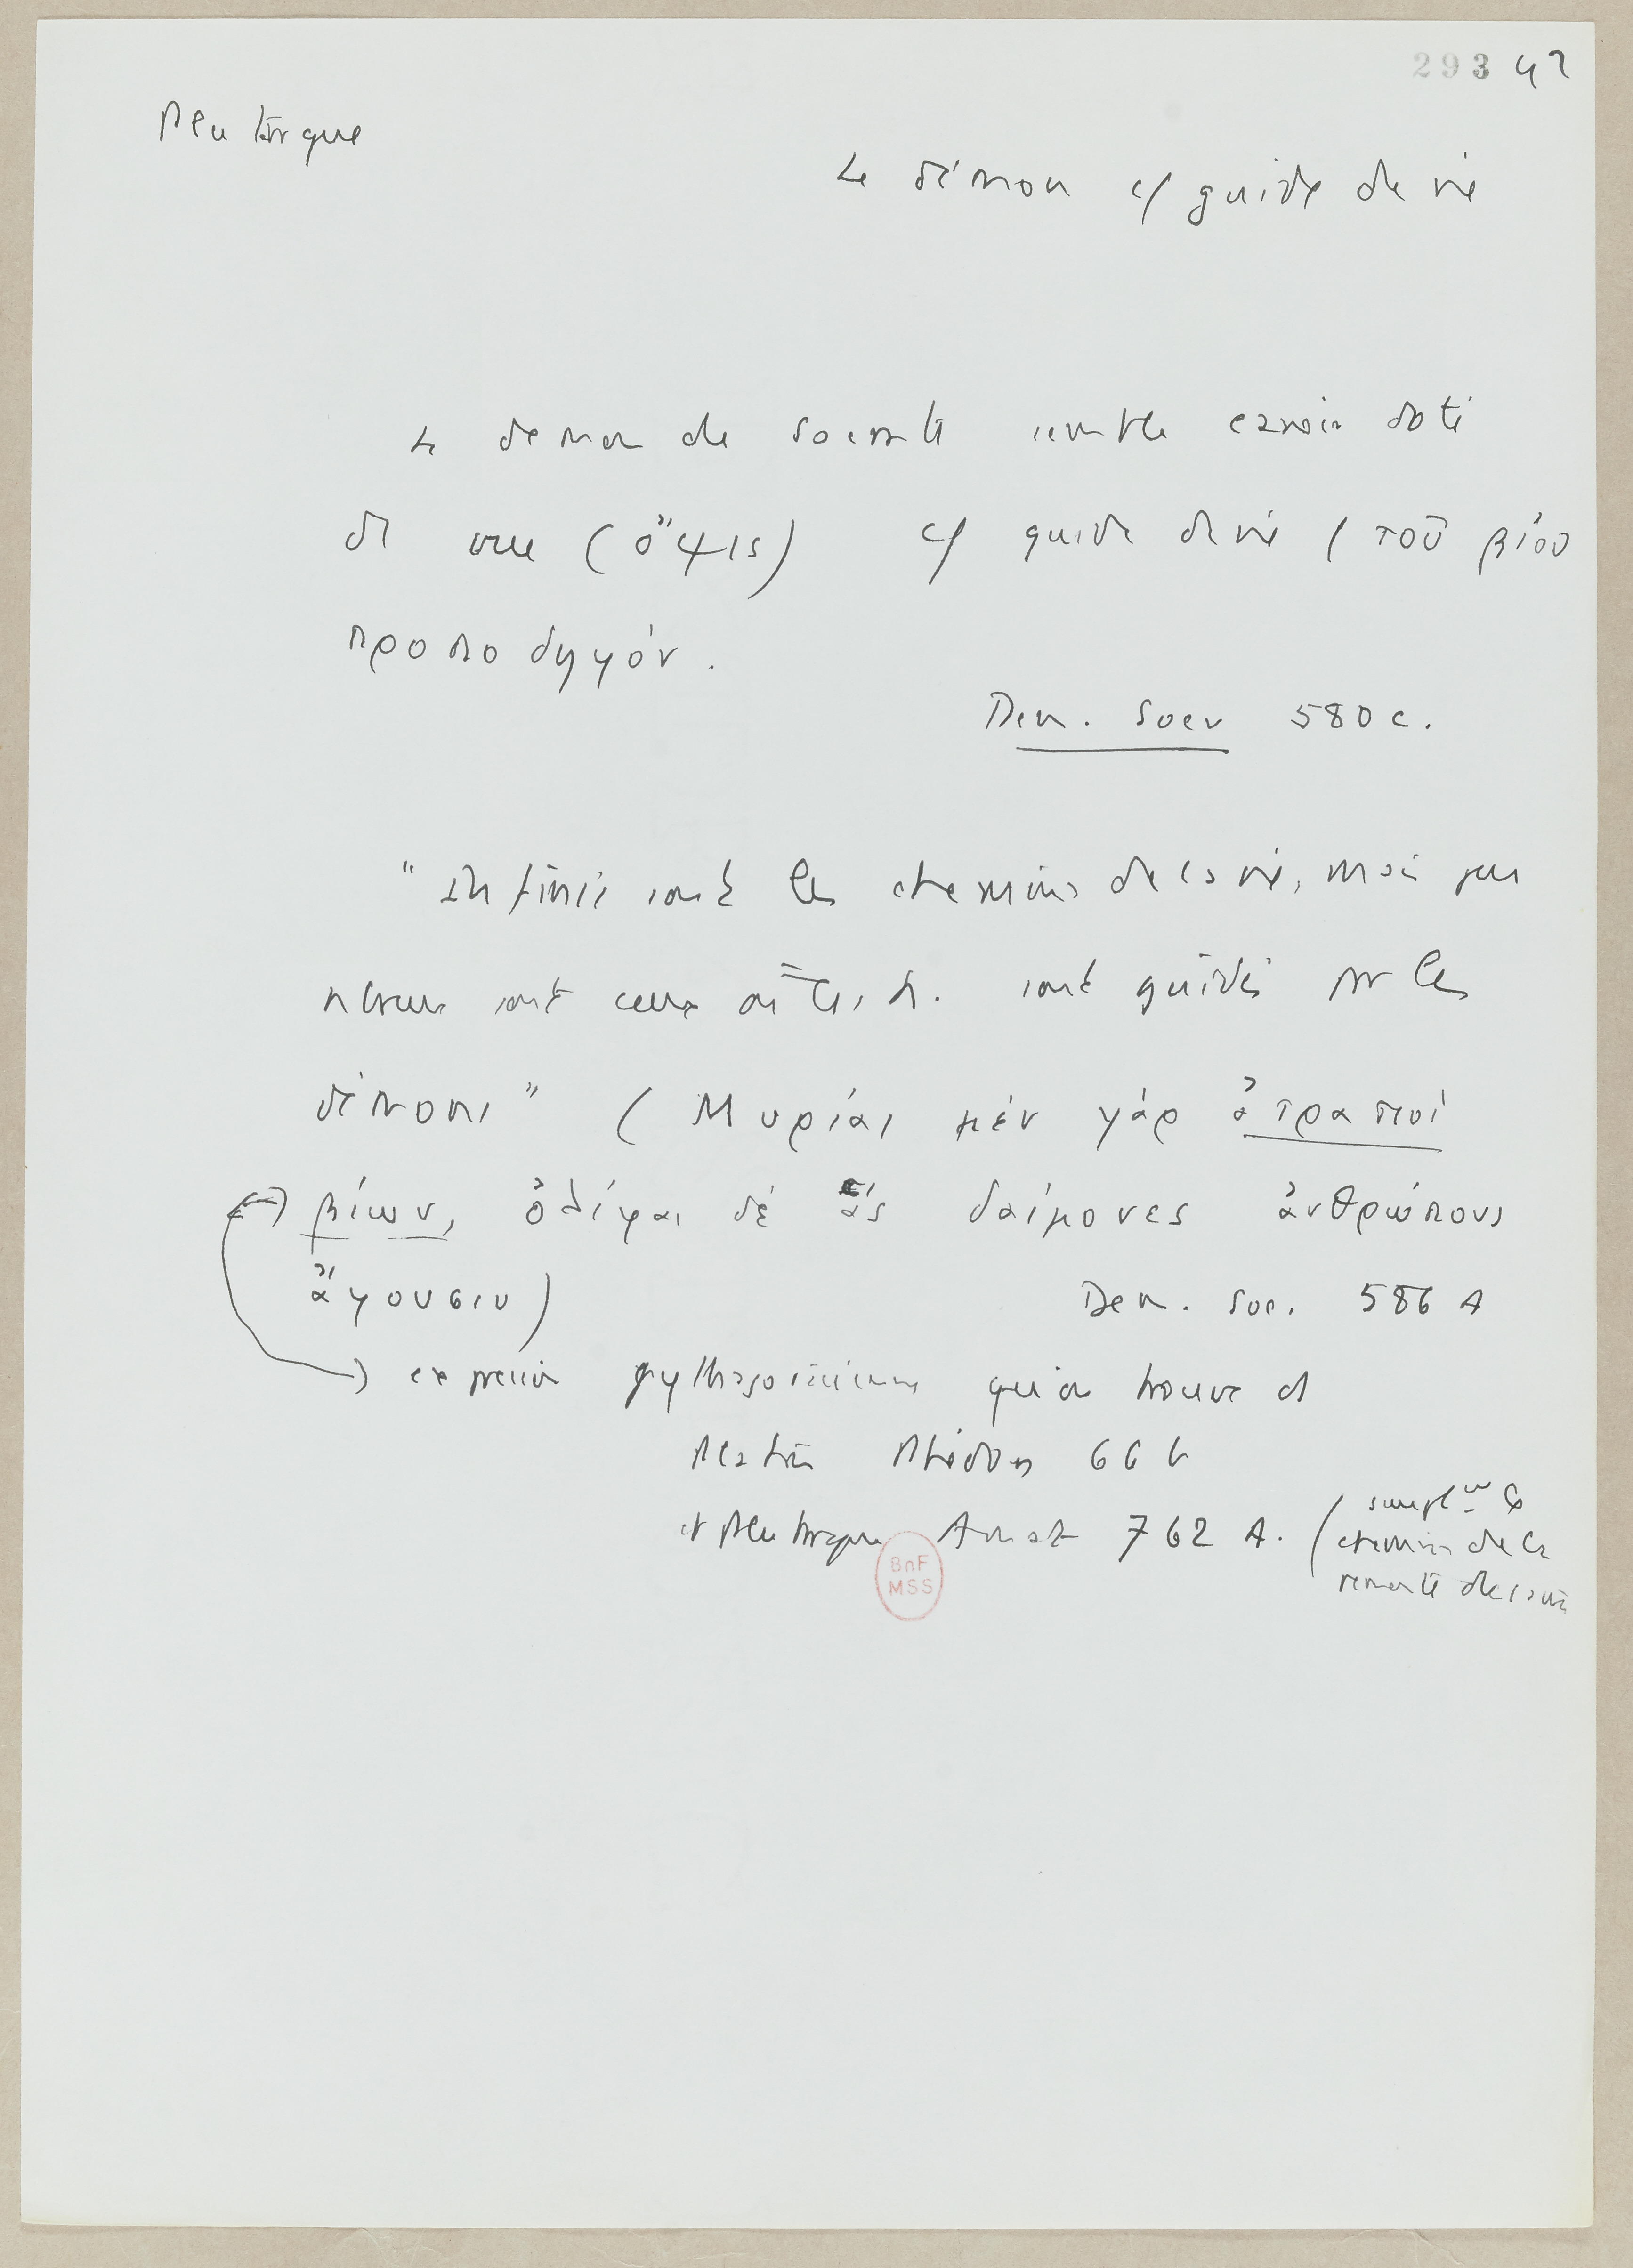 293 42
Plutarque
Le démon c/ guide de vie
Le démon de Socrate semble avoir doté
de vue (ὄψις) c/ guide de vie (τοῦ βίου
προποδηγόν.
Dem. Socr 580 c.
" Infinis sont les chemins de la vie, mais peu
nbreux sont ceux où les h. sont guidés par les
démons " (Μυρίαι μέν γάρ ἀτραποί
βίων, ὀλίγαι δέ ἅς δαίμονες ἀνθρώπους
ἄγουσιν)
Dem. Soc. 586 A
→ expression pythagoricienne qu'on trouve ds
Platon Phédon 66 b
et Plutarque Amat 762 A. (simplt le
chemin de la
remontée de
BnF
MSS